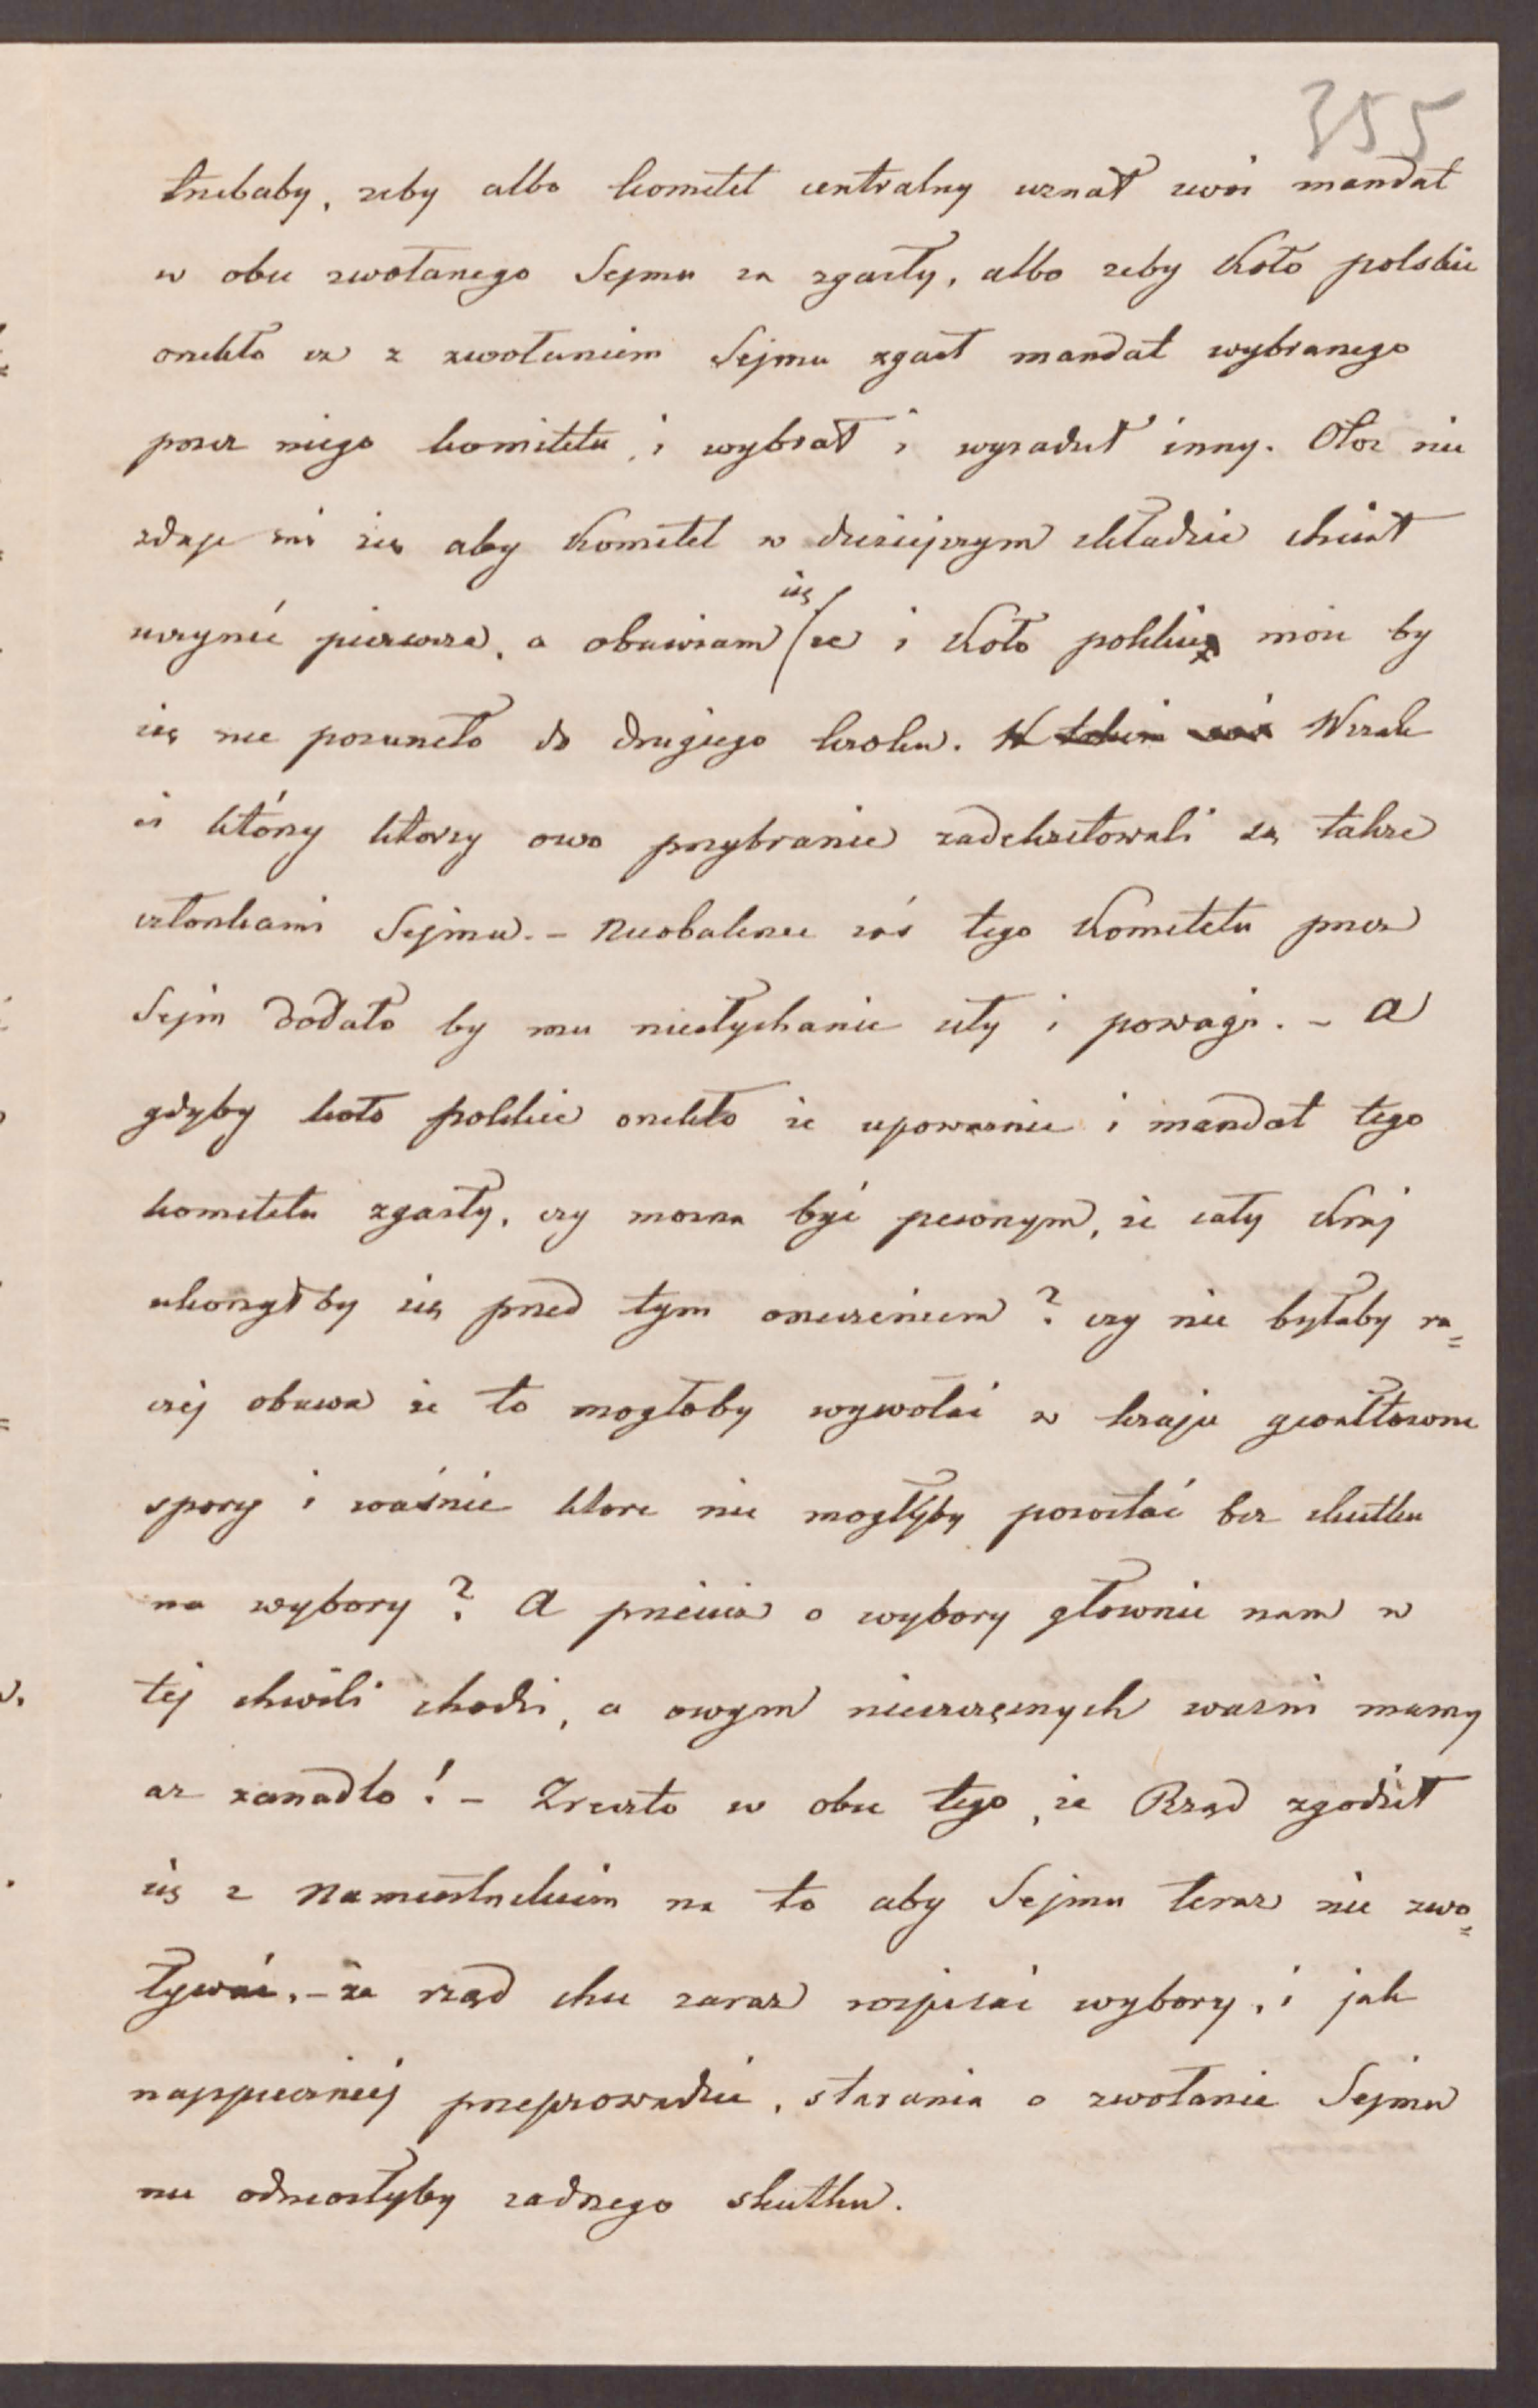 355
trzebaby, żeby albo komitet centralny uznał swój mandat
w obec zwołanego Sejmu za zgasły, albo żeby Koło polskie
orzekło że z zwołaniem Sejmu zgasł mandat wybranego
przez niego komitetu, i wybrał i wysadził inny. Otoz nie
zdaje mi się aby Komitet w dzisiejszym składzie chciał
uczynić pierwsze, a obawiam się że i Koło polskie może by
się nie posuneło do drugiego kroku. W takim razie Wszak
ci którzy ktorzy owo przybranie zadekretowali są także
członkami Sejmu. – Nieobalenie zaś tego Komitetu przez
Sejm dodało by mu niesłychanie siły i powagi. – A
gdyby koło polskie orzekło że upoważnie i mandat tego
komitetu zgasły, czy mozna być pewnym, że cały Kraj
ukorzyłby się przed tym orzeczeniem? czy nie byłaby ra=
czej obawa że to mogłoby wywołać w kraju gwałtowne
spory i waśnie ktore nie mogłyby pozostać bez skutku
na wybory? A przecież o wybory głownie nam w
tej chwili chodzi, a owym nieszczęsnych wasni mamy
az zanadto! – Zreszto w obec tego, że Rząd zgodził
się z Namiestnikiem na to aby Sejmu teraz nie zwo=
ływać, – że rząd chce zaraz rozpisać wybory, i jak
najspieszniej przeprowadzić, starania o zwołanie Sejmu
nie odniosłyby zadnego skutku.